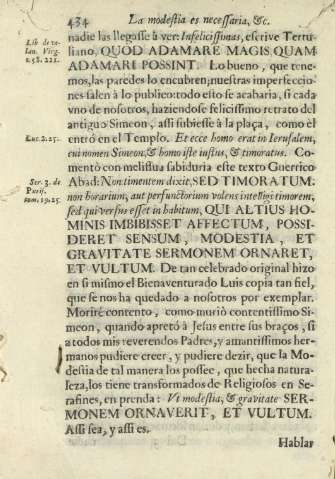 434 La modestia es necessaria, &c.
nadie las llegasse à ver: Infelicissimas, escrive Tertu-
Lib. de ve-
lan. Virg.
c. 58. 221.
liano, QUOD ADAMARE MAGIS QUAM
ADAMARI POSSINT. Lo bueno, que tene-
mos, las paredes lo encubren; nuestras imperfeccio-
nes salen à lo publico: todo esto se acabaria, si cada
vno de nosotros, haziendose felicissimo retrato del
antiguo Simeon, assi subiesse à la plaça, como el
Luc. 2. 25.
entrò en el Templo. Et ecce homo erat in Ierusalem,
cui nomen Simeon, & homo iste iustus, & timoratus. Co-
mentò con melistua suavidad este texto Guerrico
Ser. 3. de
Purif.
num. 19. 25
Abad: Non timentem dixit, SED TIMORATUM:
non horarium, aut perfunctorium volens intelligi timorem,
sed qui versus esset in habitum, QUI ALTIUS HO-
MINIS IMBIBISSET AFFECTUM, POSSI-
DERET SENSUM, MODESTIA, ET
GRAVITATE SERMONEM ORNARET,
ET VULTUM. De tan celebrado original hizo
en si mismo el Bienaventurado Luis copia tan fiel,
que se nos ha quedado a nosotros por exemplar.
Morirè contento, como muriò contentissimo Si-
meon, quando apretò à Jesus entre sus braços, si
a todos mis reverendos Padres, y amantissimos her-
manos pudiere creer, y pudiere dezir, que la Mo-
destia de tal manera los possee, que hecha natura-
leza, los tiene transformados de Religiosos en Se-
rafines, en prenda: Vt modestia, & gravitate SER-
MONEM ORNAVERIT, ET VULTUM.
Assi sea, y assi es.
Hablar